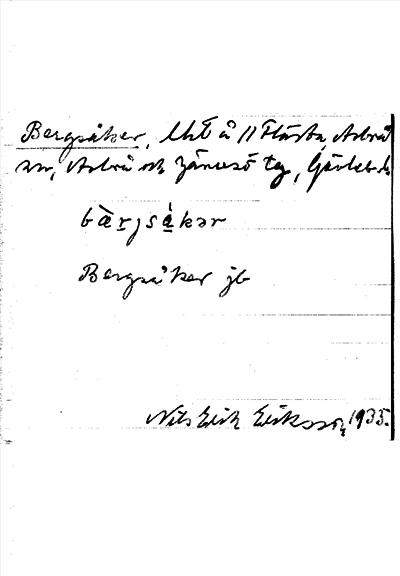 Bergsåker, lht å 11 Flästa, Arbrå
sn, Arbrå och Järvsö tg, Gävleb. l.
bæ̀rjsǻkər
Bergsåker jb
Nils Erik Eriksson, 1935.